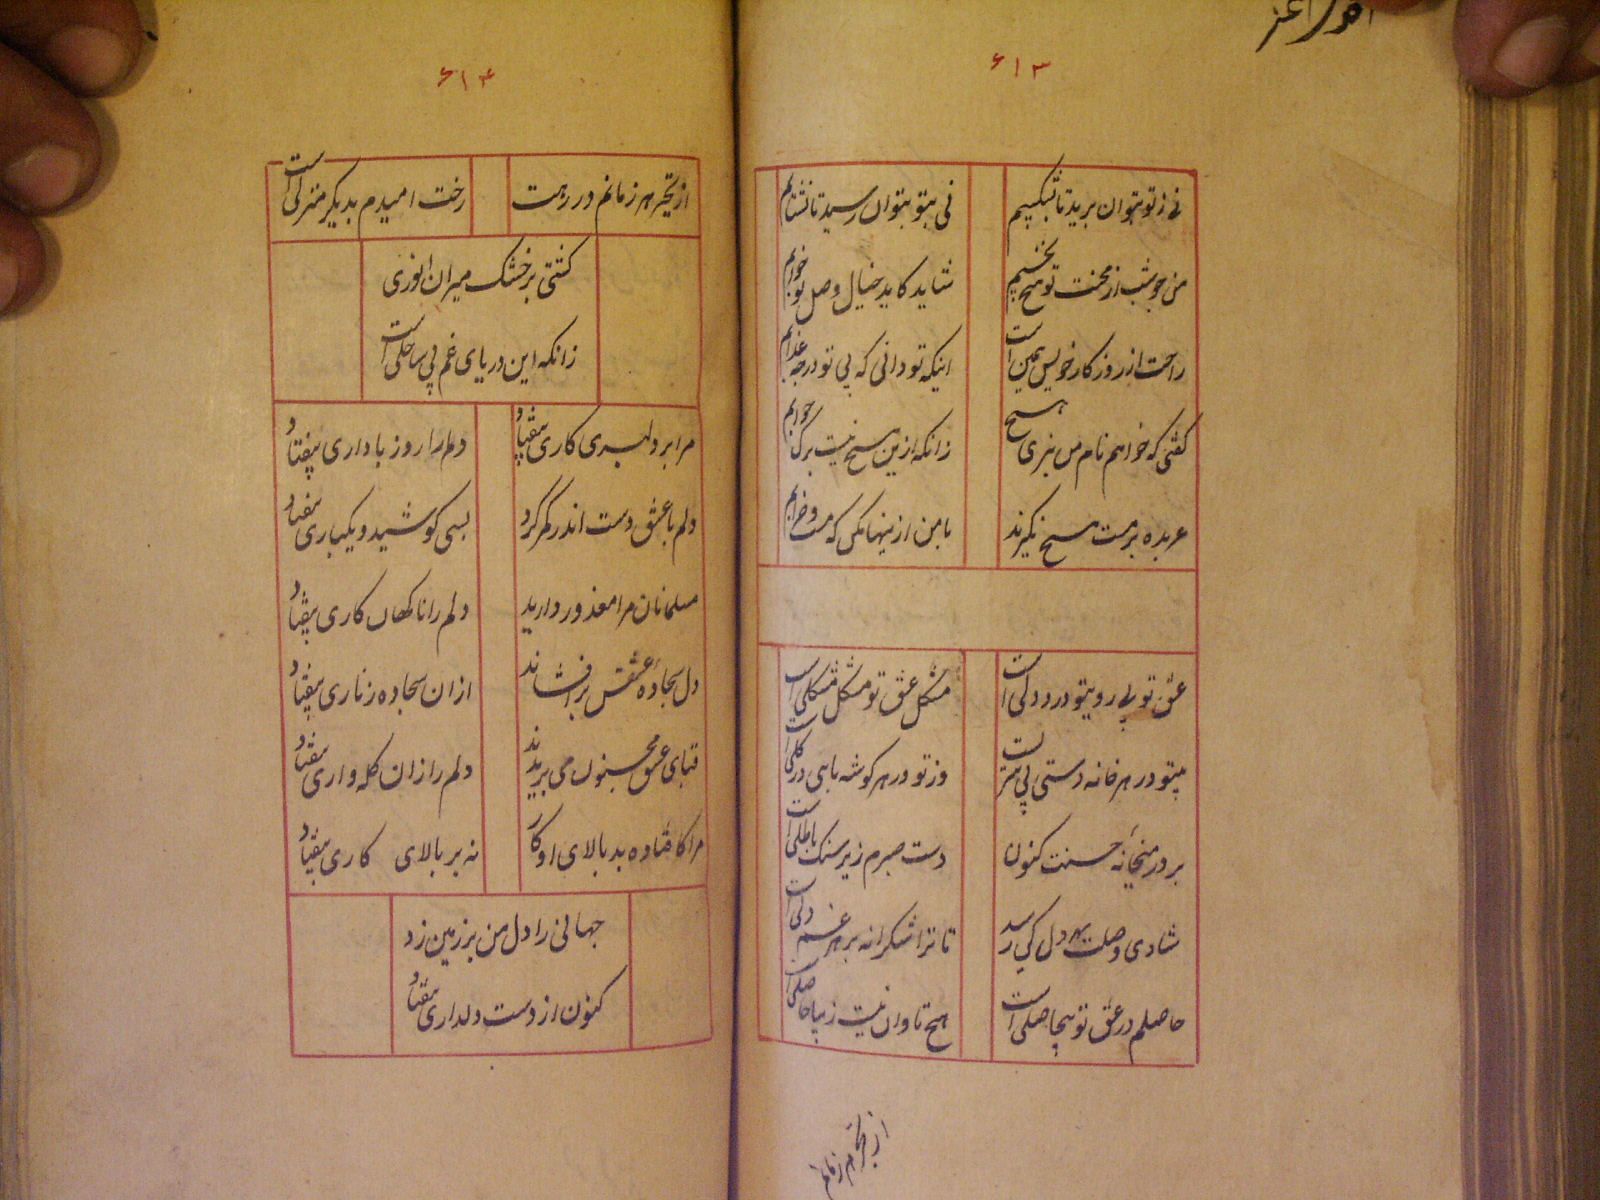 ۶۱۳
نی ز تو بتوان برید تا نشکیبم
نی بتو بتوان رسید تا نشتابم
من خوشب از محنت تو هیچ نخسپم
شاید کاید خیال وصل تو خوابم
راحت از روزگار خویش همین است
اینکه تو دانی که بی تو در چه عذابم
گفتی که خواهم نام من نبری هیچ
زانکه ازین هیچ نیست برگ جوابم
عربده بر مست هیچ نگیرند
با من از اینها مکن که مست و خرابم
عشق تو بی روی تو درد دلی است
مشکل عشق تو مشکل مشکلی است
بیتو در هر خانه دستی بر سر است
وز تو در هر گوشه پایی در گلی است
بر در میخانه حسنت کنون
دست صبرم زیر سنگ باطلی است
شادی وصلت بهر دل کی رسد
تا ترا شکرانه بر هر غم دلی است
حاصلم در عشق تو بیحاصلی است
هیچ تاوان نیست زیبا حاصلی است
از تحیر هر زمانم
۶۱۴
از تحیر هر زمانم در رهت
رخت امیدم بدیگر منزلی است
کشتی بر خشک میران انوری
زانکه این دریای غم بی ساحلی است
مرا بر دلبری کاری بیفتاد
دلم را روز بازاری بیفتاد
دلم با عشق دست اندر کمر کرد
بسی کوشید و یکباری بیفتاد
مسلمانان مرا معذور دارید
دلم را ناگهان کاری بیفتاد
دل سجاده عشقش برافشاند
ازان سجاده زناری بیفتاد
قبای عشق مجنون می بریدند
دلم را زان کله واری بیفتاد
مرا کافتاده بد بالای او کار
نه بر بالای کاری بیفتاد
جهانی را دل من بر زمین زد
کنون از دست دلداری بیفتاد